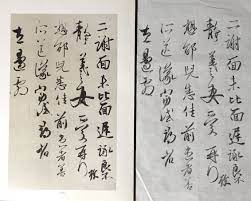 二謝面未比面遲詠良不
静羲之女愛再拜
想邰兒悉佳前患者善
所送議當試尋省
左邊劇
二謝面未比面遲詠良不
静羲之女愛再拜
想邰兒悉佳前患者善
所送議當試尋省
左邊劇